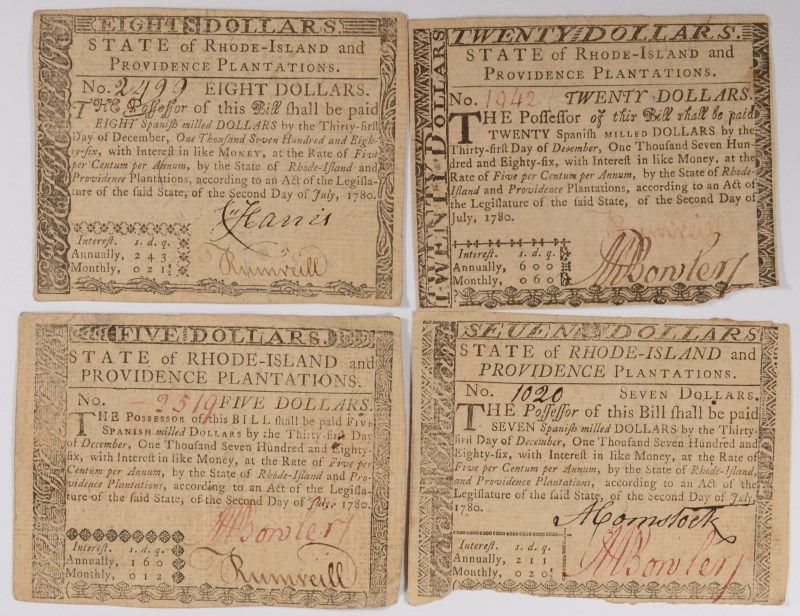 EIGHT DOLLARS
STATE of RHODE-ISLAND and
PROVIDENCE PLANTATIONS.
No. 2499 EIGHT DOLLARS.
THE Poſſeſſor of this Bill ſhall be paid
EIGHT Spaniſh milled DOLLARS by the Thirty-firſt
Day of December, One Thouſand Seven Hundred and Eigh-
ty-ſix, with Intereſt in like MONEY, at the Rate of Five
per Centum per Annum, by the State of Rhode-Iſland and
Providence Plantations, according to an Act of the Legiſla-
ture of the ſaid State, of the Second Day of July, 1780.
Harris
Intereſt. s. d. q.
Annually, 2 4 3
Monthly, 0 2 1
Rumreill
TWENTY DOLLARS.
TWENTY DOLLARS
STATE of RHODE-ISLAND and
PROVIDENCE PLANTATIONS.
No. 1942 TWENTY DOLLARS.
THE Poſſeſſor of this Bill ſhall be paid
TWENTY Spaniſh MILLED DOLLARS by the
Thirty-firſt Day of December, One Thouſand Seven Hun-
dred and Eighty-ſix, with Intereſt in like Money, at the
Rate of Five per Centum per Annum, by the State of Rhode-
Iſland and Providence Plantations, according to an Act of
the Legiſlature of the ſaid State, of the Second Day of
July, 1780.
Rumreill
Intereſt. s. d. q.
Annually, 6 0 0
Monthly, 0 6 0
Bowler
FIVE DOLLARS.
STATE of RHODE-ISLAND and
PROVIDENCE PLANTATIONS.
No. 2519 FIVE DOLLARS.
THE POSSESSOR of this BILL ſhall be paid FIVE
SPANISH milled DOLLARS by the Thirty-firſt Day
of December, One Thouſand Seven Hundred and Eighty-
ſix, with Intereſt in like Money, at the Rate of Five per
Centum per Annum, by the State of Rhode-Iſland and Pro-
vidence Plantations, according to an Act of the Legiſla-
ture of the ſaid State, of the Second Day of July, 1780.
Bowler
Intereſt. s. d. q.
Annually, 1 6 0
Monthly, 0 1 2
Rumreill
SEVEN DOLLARS
STATE of RHODE-ISLAND and
PROVIDENCE PLANTATIONS.
No. 1020 SEVEN DOLLARS.
THE Poſſeſſor of this Bill ſhall be paid
SEVEN Spaniſh milled DOLLARS by the Thirty-
firſt Day of December, One Thouſand Seven Hundred and
Eighty-ſix, with Intereſt in like Money, at the Rate of
Five per Centum per Annum, by the State of Rhode-Iſland,
and Providence Plantations, according to an Act of the
Legiſlature of the ſaid State, of the Second Day of July,
1780.
A Comstock
Intereſt. s. d. q.
Annually, 2 1 1
Monthly, 0 2 0
Bowler